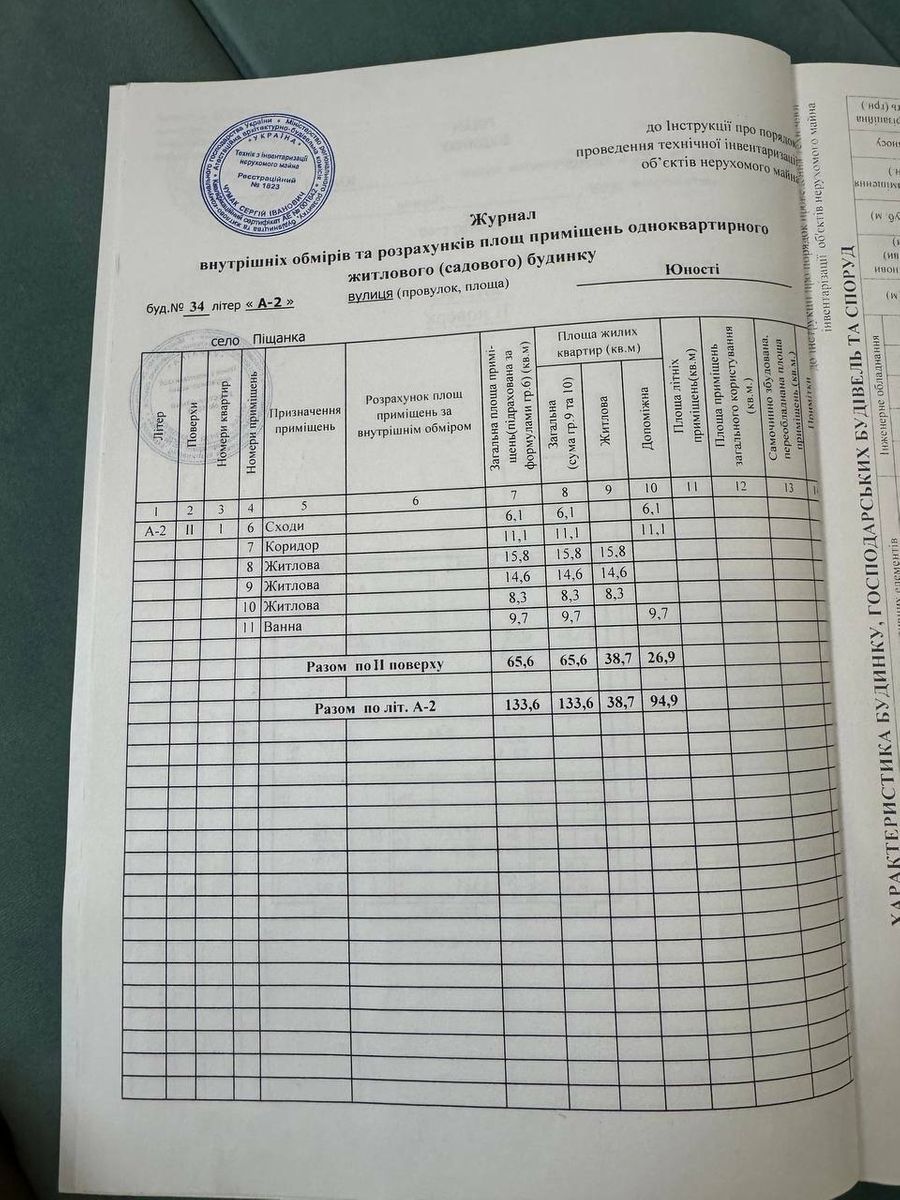 до Інструкції про порядок
проведення технічної інвентаризації
об’єктів нерухомого майна
УКРАЇНА
Технік з інвентаризації
нерухомого майна
Реєстраційний
№ 1823
ЧУМАК СЕРГІЙ ІВАНОВИЧ
Журнал
внутрішніх обмірів та розрахунків площ приміщень одноквартирного
житлового (садового) будинку
буд.№ 34 літер « А-2 » вулиця (провулок, площа) Юності
село Піщанка
Літер
Поверхи
Номери квартир
Номери приміщень
Призначення
приміщень
Розрахунок площ
приміщень за
внутрішнім обміром
Загальна площа примі-
щень(підрахована за
формулами гр.6) (кв.м)
Площа жилих
квартир (кв.м)
Загальна
(сума гр.9 та 10)
Житлова
Допоміжна
Площа літніх
приміщень(кв.м)
Площа приміщень
загального користування
(кв.м.)
Самочинно збудована.
переобладнана площа
приміщень (кв.м.)
Примітки
1 2 3 4 5 6 7 8 9 10 11 12 13
А-2 II I 6 Сходи 6,1 6,1 6,1
7 Коридор 11,1 11,1 11,1
8 Житлова 15,8 15,8 15,8
9 Житлова 14,6 14,6 14,6
10 Житлова 8,3 8,3 8,3
11 Ванна 9,7 9,7 9,7
Разом по II поверху 65,6 65,6 38,7 26,9
Разом по літ. А-2 133,6 133,6 38,7 94,9
інвентарізації об'єктів нерухомого майна
ХАРАКТЕРИСТИКА БУДИНКУ, ГОСПОДАРСЬКИХ БУДІВЕЛЬ ТА СПОРУД
Інженерне обладнання